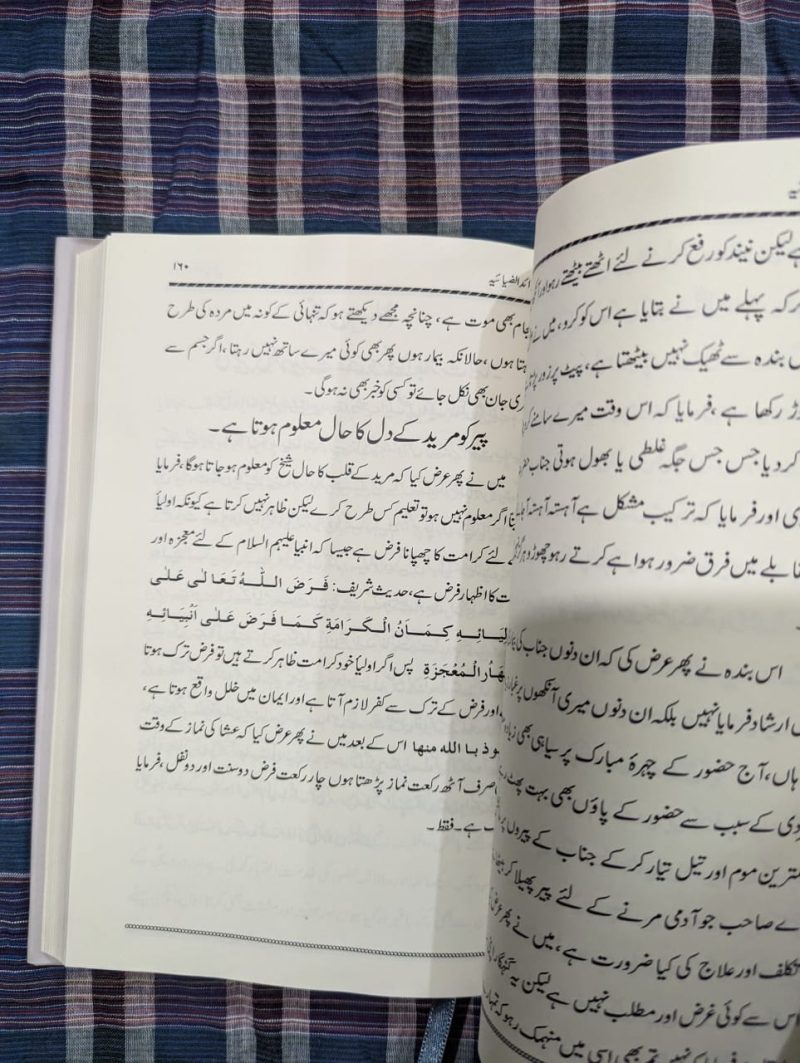 ہے لیکن نیند کو رفع کرنے لئے اٹھتے بیٹھتے رہو اور
کہ پہلے میں نے بتایا ہے اس کو کرو، میں نے
بندہ سے ٹھیک نہیں بیٹھتا ہے، پیٹ پر زور
رکھا ہے، فرمایا کہ اس وقت میرے سامنے کرو
کر دیا جس جس جگہ غلطی یا بھول ہوتی جناب
اور فرمایا کہ ترکیب مشکل ہے آہستہ آہستہ
میں فرق ضرور ہوا ہے کرتے رہو چھوڑو
اس بندہ نے پھر عرض کی کہ ان دنوں جناب کی
ارشاد فرمایا نہیں بلکہ ان دنوں میری آنکھوں پر
ہاں، آج حضور کے چہرۂ مبارک پر سیاہی بھی زیادہ
کے سبب سے حضور کے پاؤں بھی بہت پھٹ
موم اور تیل تیار کر کے جناب کے پیروں
صاحب جو آدمی مرنے کے لئے پیر پھیلا کر
تکلف اور علاج کی کیا ضرورت ہے، میں نے پھر عرض
اس سے کوئی غرض اور مطلب نہیں ہے لیکن یہ گنہگار
بھی اسی میں منہمک رہو کہ
۱۶۰
ائد الضیائیہ
جام بھی موت ہے، چنانچہ مجھے دیکھتے ہو کہ تنہائی کے کونہ میں مردہ کی طرح
ہتا ہوں، حالانکہ بیمار ہوں پھر بھی کوئی میرے ساتھ نہیں رہتا، اگر جسم سے
ری جان بھی نکل جائے تو کسی کو خبر بھی نہ ہوگی۔
پیر کو مرید کے دل کا حال معلوم ہوتا ہے۔
میں نے پھر عرض کیا کہ مرید کے قلب کا حال شیخ کو معلوم ہو جاتا ہوگا، فرمایا
اگر معلوم نہیں ہو تو تعلیم کس طرح کرے لیکن ظاہر نہیں کرتا ہے کیونکہ اولیأ
لئے کرامت کا چھپانا فرض ہے جیسا کہ انبیا علیہم السلام کے لئے معجزہ اور
ت کا اظہار فرض ہے، حدیث شریف: فَرَضَ اللّٰهُ تَعَالٰی عَلٰی
لِیَائِهِ کِتْمَانُ الْکَرَامَةِ کَمَا فَرَضَ عَلٰی اَنْبِیَائِهِ
هَارَ الْمُعْجَزَةِ پس اگر اولیأ خود کرامت ظاہر کرتے ہیں تو فرض ترک ہوتا
اور فرض کے ترک سے کفر لازم آتا ہے اور ایمان میں خلل واقع ہوتا ہے،
وذ با الله منها اس کے بعد میں نے پھر عرض کیا کہ عشا کی نماز کے وقت
صرف آٹھ رکعت نماز پڑھتا ہوں چار رکعت فرض دو سنت اور دو نفل، فرمایا
ہے۔ فقط۔